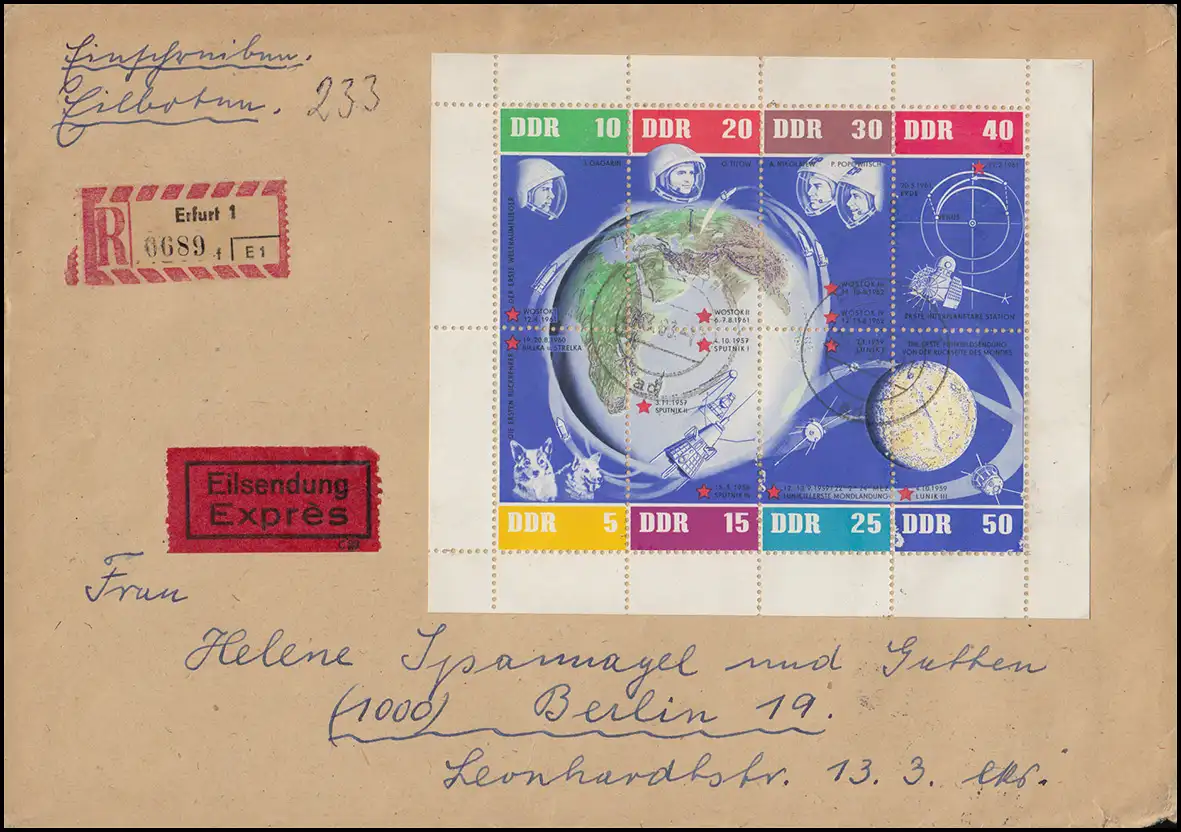 Einschreiben.
Eilboten. 233
R Erfurt 1
0689 f E1
DDR 10 DDR 20 DDR 30 DDR 40
J. GAGARIN G. TITOW A. NIKOLAJEW P. POPOWITSCH
DER ERSTE WELTRAUMFLIEGER
VENUS
WOSTOK I
12.4.1961
WOSTOK II
6.-7.8.1961
WOSTOK III
WOSTOK IV
ERSTE INTERPLANETARE STATION
DIE ERSTEN RÜCKKEHRER
19.-20.8.1960
BJELKA u. STRELKA
4.10.1957
SPUTNIK I
LUNIK I
DIE ERSTE FUNKBILDSENDUNG
VON DER RÜCKSEITE DES MONDES
3.11.1957
SPUTNIK II
15.5.1958
SPUTNIK III
LUNIK II ERSTE MONDLANDUNG
4.10.1959
LUNIK III
DDR 5 DDR 15 DDR 25 DDR 50
Eilsendung
Exprès
Frau
Helene Spannagel und Gatten
(1000) Berlin 19.
Leonhardtstr. 13. 3.